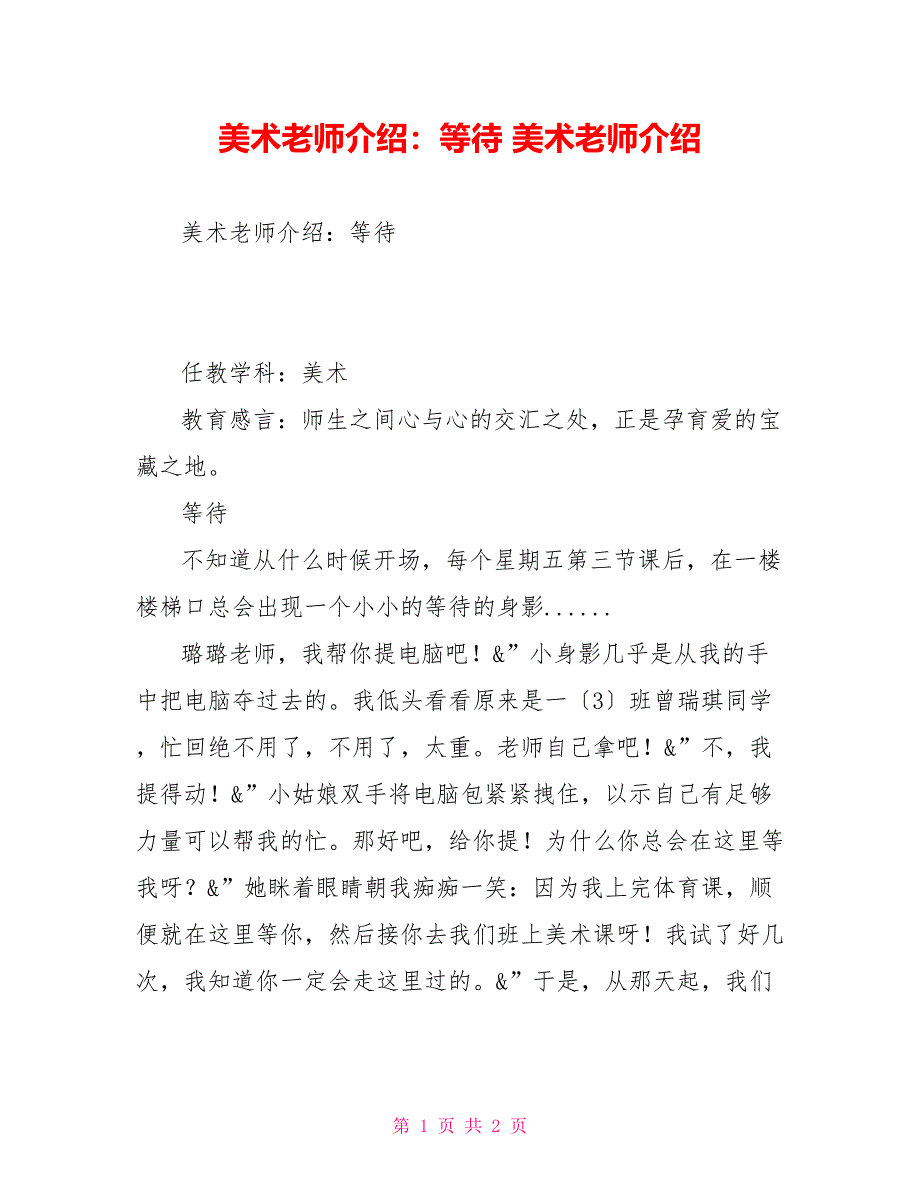 美术老师介绍：等待 美术老师介绍
美术老师介绍：等待
任教学科：美术
教育感言：师生之间心与心的交汇之处，正是孕育爱的宝
藏之地。
等待
不知道从什么时候开场，每个星期五第三节课后，在一楼
楼梯口总会出现一个小小的等待的身影......
璐璐老师，我帮你提电脑吧！&”小身影几乎是从我的手
中把电脑夺过去的。我低头看看原来是一〔3〕班曾瑞琪同学
，忙回绝不用了，不用了，太重。老师自己拿吧！&”不，我
提得动！&”小姑娘双手将电脑包紧紧拽住，以示自己有足够
力量可以帮我的忙。那好吧，给你提！为什么你总会在这里等
我呀？&”她眯着眼睛朝我痴痴一笑：因为我上完体育课，顺
便就在这里等你，然后接你去我们班上美术课呀！我试了好几
次，我知道你一定会走这里过的。&”于是，从那天起，我们
第 1 页 共 2 页